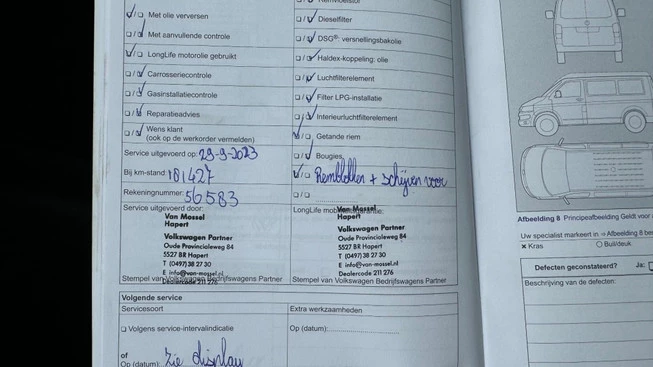 Remvloeistof
Met olie verversen
Dieselfilter
Met aanvullende controle
DSG®: versnellingsbakolie
LongLife motorolie gebruikt
Haldex-koppeling: olie
Carrosseriecontrole
Luchtfilterelement
Gasinstallatiecontrole
Filter LPG-installatie
Reparatieadvies
Interieurluchtfilterelement
Wens klant
(ook op de werkorder vermelden)
Getande riem
Service uitgevoerd op: 29-9-2023
Bougies
Bij km-stand: 181427
Remblokken + schijven voor
Rekeningnummer: 56583
Service uitgevoerd door:
Van Mossel
Hapert
Volkswagen Partner
Oude Provincialeweg 84
5527 BR Hapert
T (0497) 38 27 30
E info@van-mossel.nl
Dealercode 211 276
Stempel van Volkswagen Bedrijfswagens Partner
LongLife
Van Mossel
Hapert
Volkswagen Partner
Oude Provincialeweg 84
5527 BR Hapert
T (0497) 38 27 30
E info@van-mossel.nl
Dealercode 211 276
Stempel van Volkswagen Bedrijfswagens Partner
Volgende service
Servicesoort
Extra werkzaamheden
Volgens service-intervalindicatie
Op (datum):
of
Op (datum): zie display
Afbeelding 8 Principeafbeelding Geldt voor
Uw specialist markeert in ⇒ Afbeelding 8
× Kras
Buil/deuk
Defecten geconstateerd? Ja:
Beschrijving van de defecten: